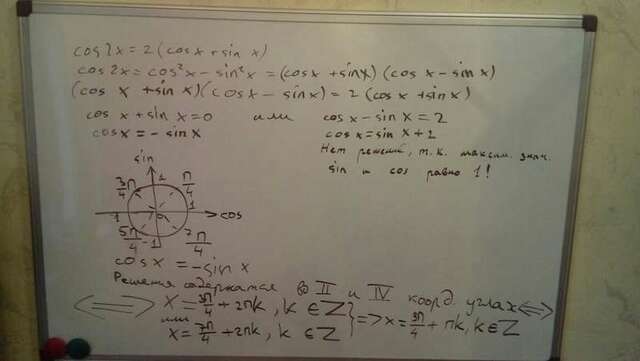 cos2x = 2 (cosx + sin x)
cos2x = cos²x - sin²x = (cosx + sinx) (cosx - sinx)
(cos x + sin x)(cosx - sinx) = 2 (cosx + sinx)
cosx + sinx = 0 или cosx - sinx = 2
cosx = - sinx cosx = sinx + 2
Нет решений, т.к. максим. знач.
sin и cos равно 1!
sin
3π/4 1 π/4
1 0 1 cos
5π/4 -1 7π/4
cosx = -sin x
Решения содержатся во II и IV коорд. углах
<=> x = 3π/4 + 2πk, k ∈ Z } => x = 3π/4 + πk, k ∈ Z <=>
или
x = 7π/4 + 2πk, k ∈ Z